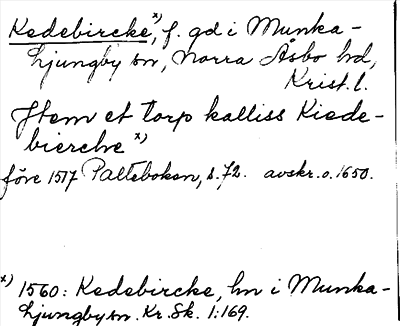 Kedebircke x), f. gd i Munka-
Ljungby sn, Norra Åsbo hd,
Krist. l.
Jtem et torp kalliss Kiede-
bierche x)
före 1517 Palteboken, s. 72. avskr. o. 1650.
x) 1560: Kedebircke, hn i Munka-
Ljungby sn. Kr. Sk. 1:169.